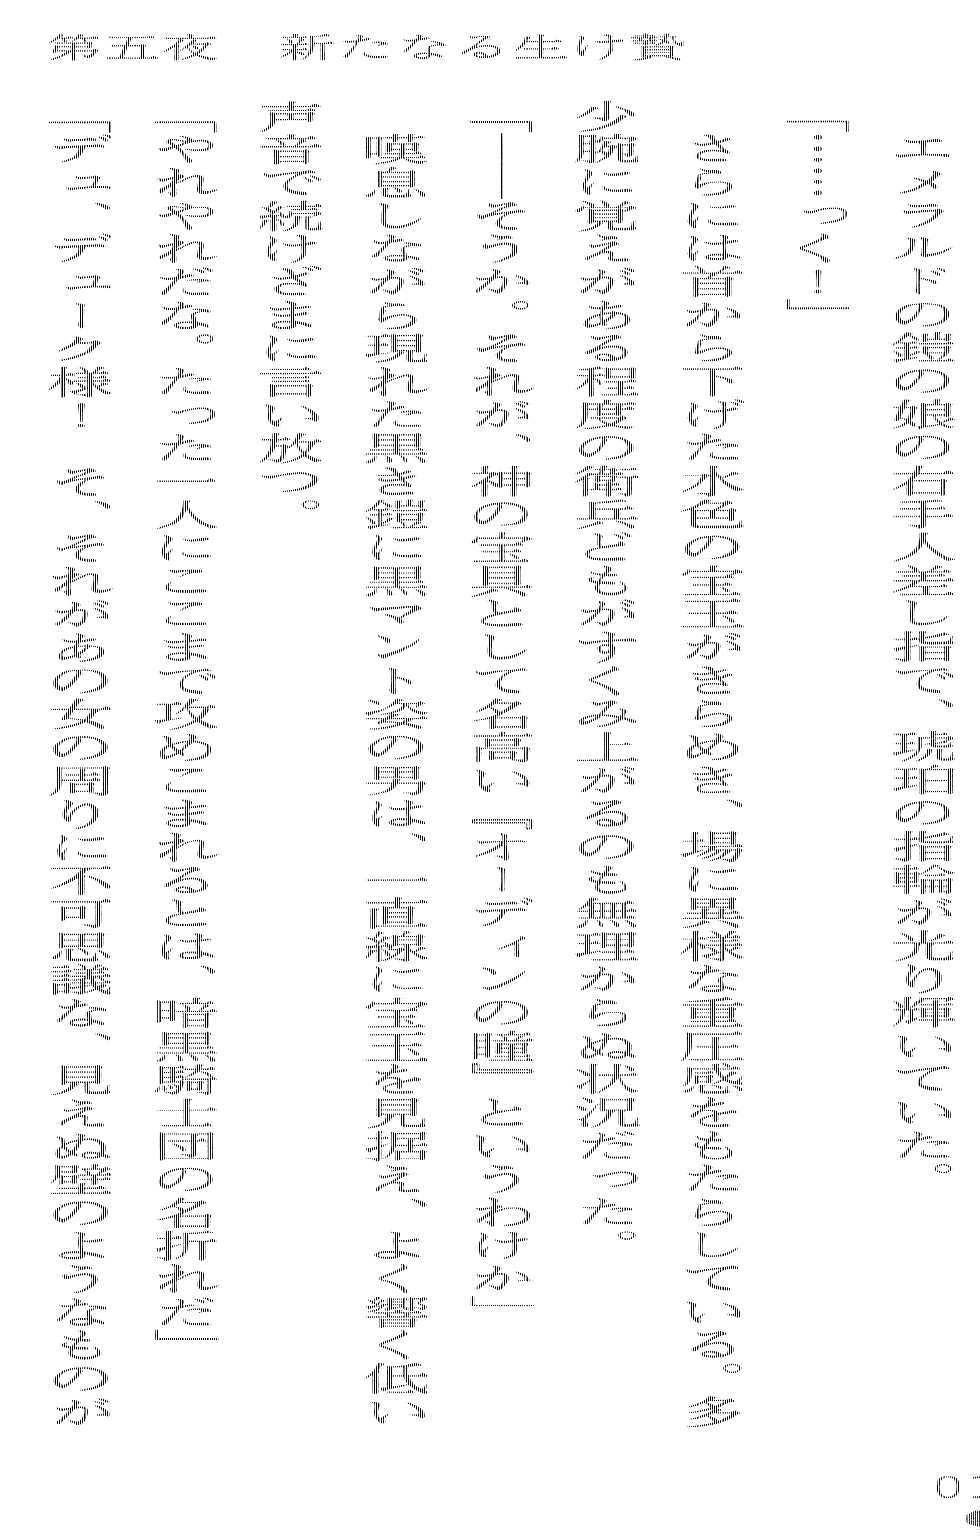 第五夜　新たなる生け贄
エメラルドの鎧の娘の右手人差し指で、琥珀の指輪が光り輝いていた。
「……つく！」
さらには首から下げた水色の宝玉がきらめき、場に異様な重圧感をもたらしている。多
少腕に覚えがある程度の衛兵どもがすくみ上がるのも無理からぬ状況だった。
「――そうか。それが、神の宝具として名高い『オーディンの瞳』というわけか」
嘆息しながら現れた黒き鎧に黒マント姿の男は、一直線に宝玉を見据え、よく響く低い
声音で続けざまに言い放つ。
「やれやれだな。たった一人にここまで攻めこまれるとは、暗黒騎士団の名折れだ」
「デュ、デューク様！　そ、それがあの女の周りに不可思議な、見えぬ壁のようなものが